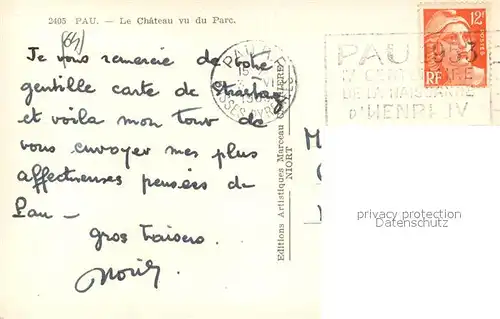 2405 PAU. — Le Château vu du Parc.
(64)
Je vous remercie de votre
gentille carte de Strasbourg
et voila mon tour de
vous envoyer mes plus
affectueuses pensées de
Pau —
gros baisers.
Editions Artistiques Marceau CARRIERE
NIORT
PAU
15
BSSES PYRENEES
PAU 1953
IV CENTENAIRE
DE LA NAISSANCE
D'HENRI IV
12F
RF
M
privacy protection
Datenschutz